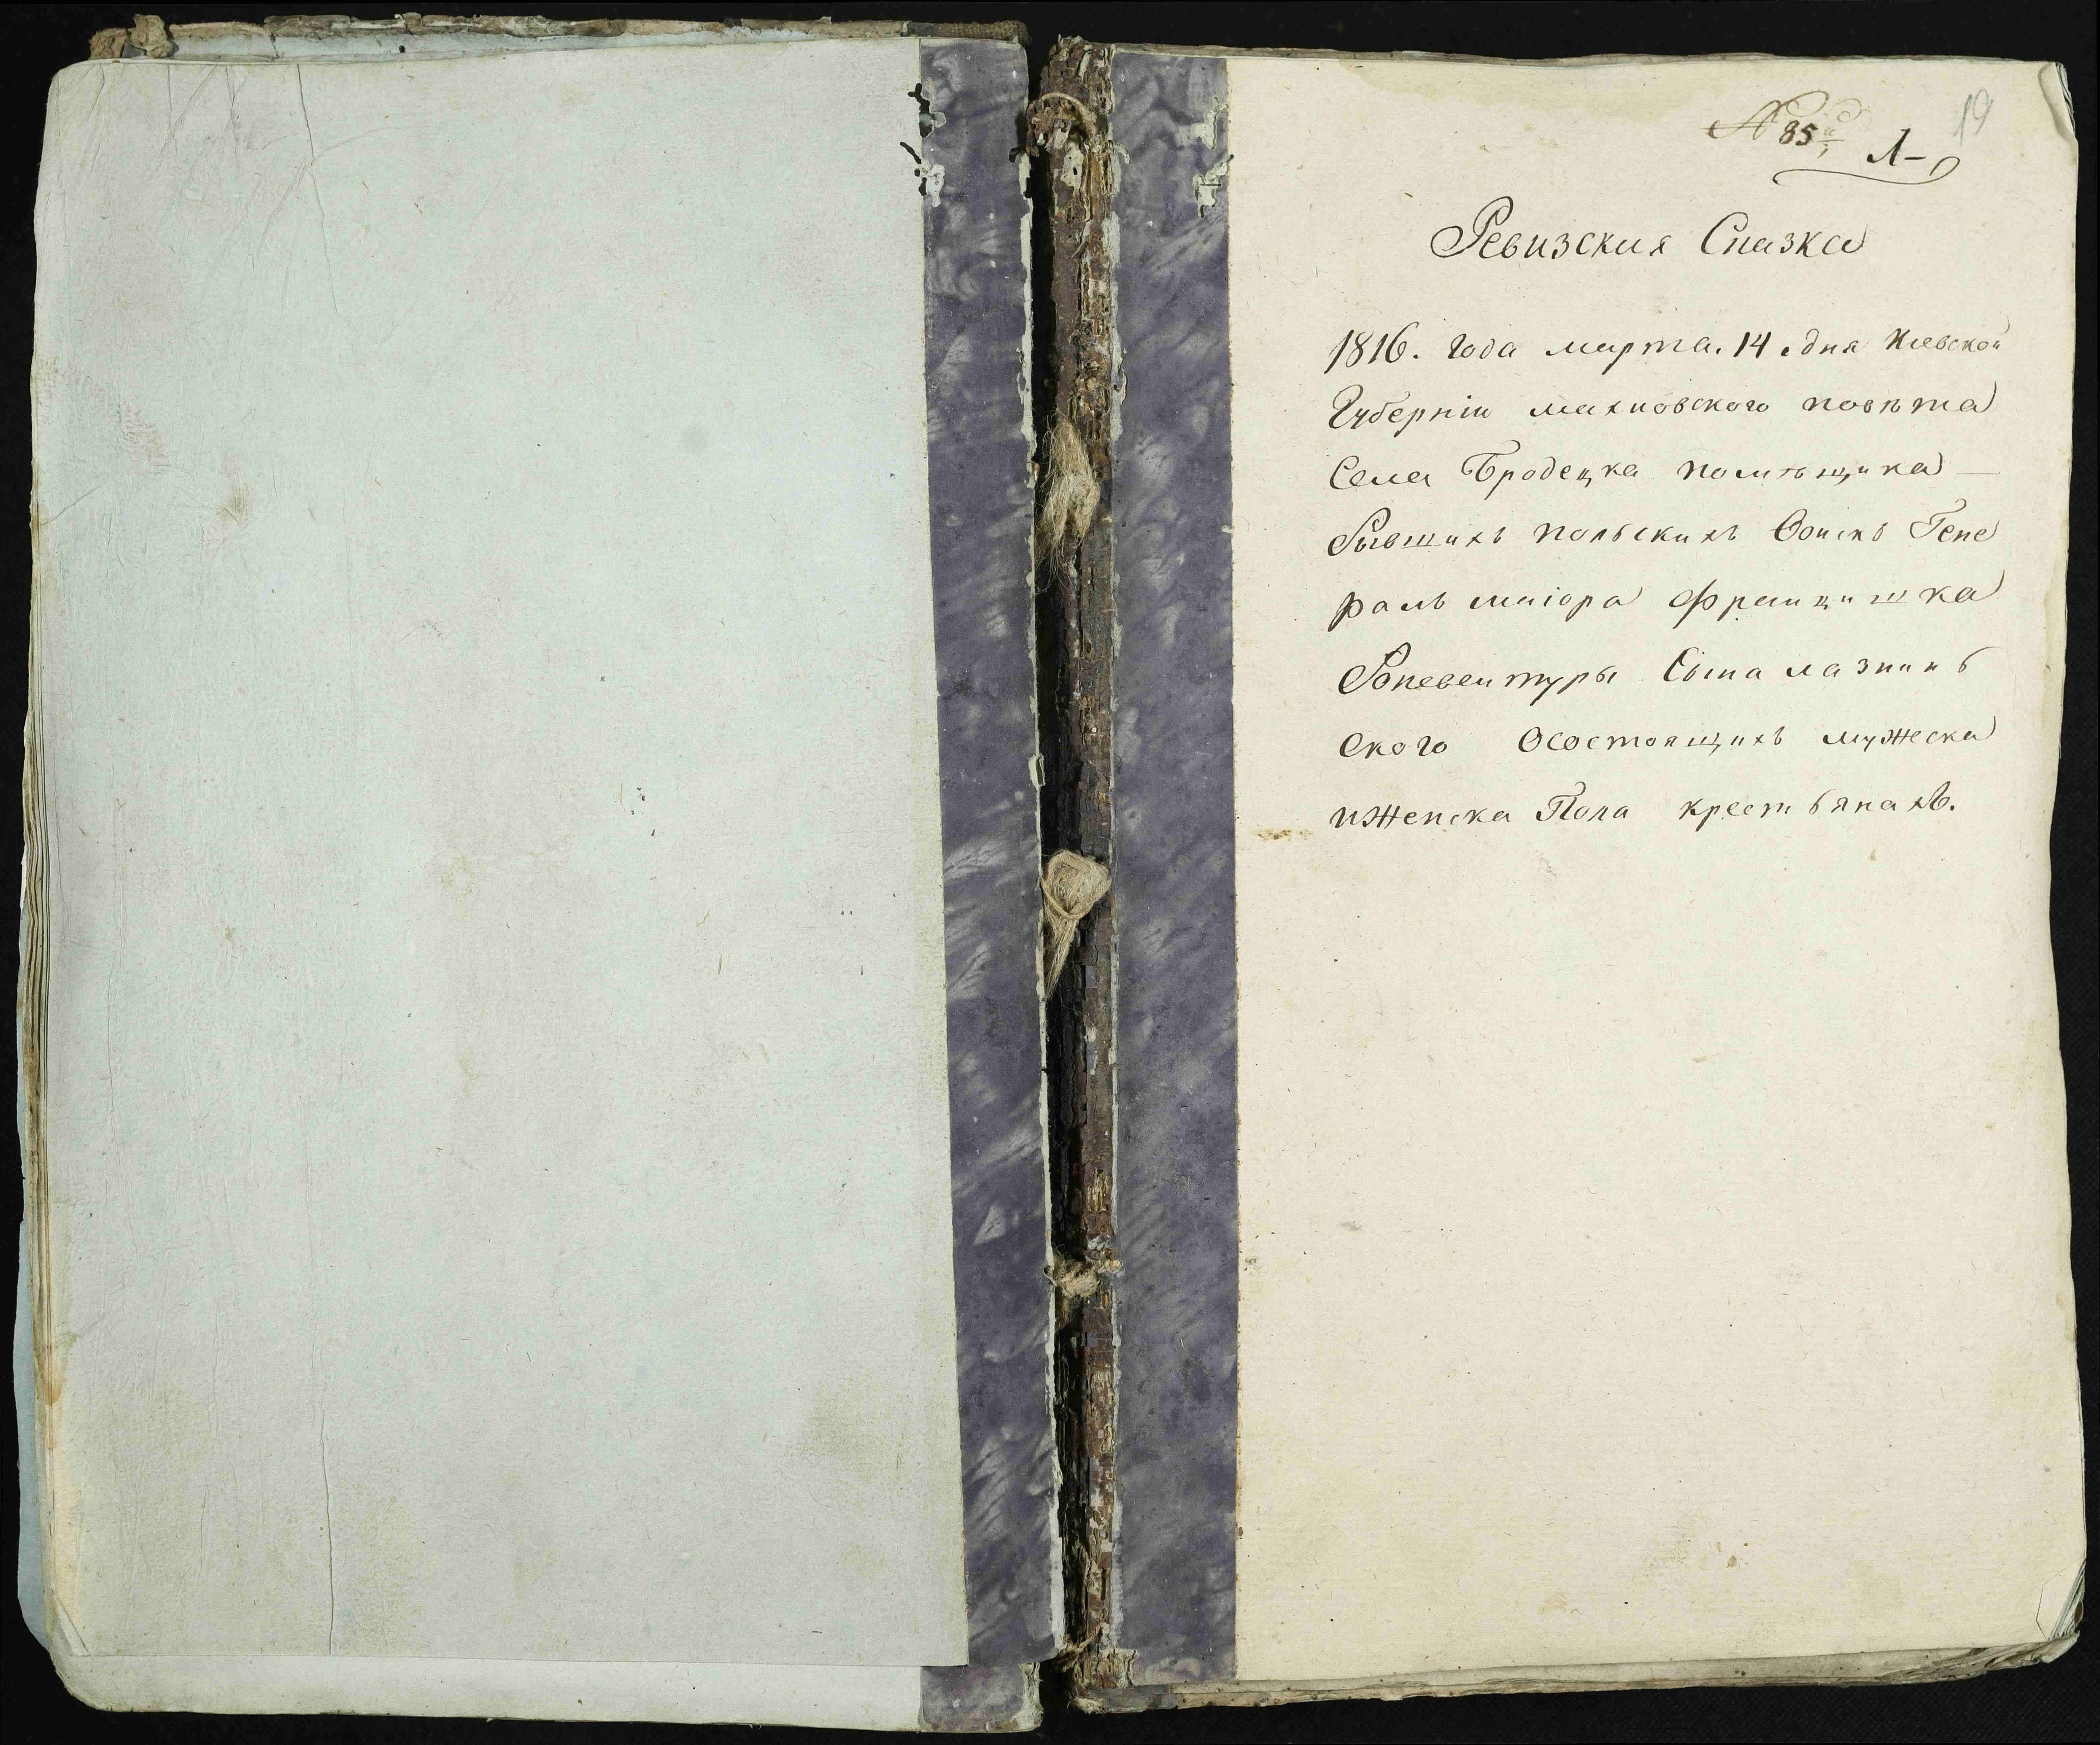 № 85й
19
1-
Ревизская Сказка
1816. года марта. 14 дня Киевской
Губерніи махновского повѣта
Села Бродецка помѣщика —
Бывшихъ польскихъ Войскъ Гене
ралъ маіора Францишка
Боневентуры Сына лазнинь
ского Осостоящихъ мужеска
иженска Пола крестьянахъ.